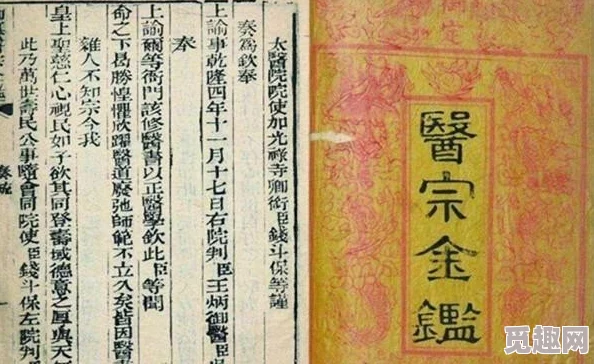 醫宗金鑑
太醫院院使加光祿寺卿銜臣錢斗保等謹
奏為欽奉
上諭事乾隆四年十一月十七日右院判臣王炳御醫
奉
上諭爾等衙門該修醫書以正醫學欽此臣等聞
命之下曷勝惶懼欣躍醫道廢弛師範不立久矣皆因醫
雜人不知宗今我
皇上聖慈仁心視民如子欲其同登壽域德意之厚與天
此乃萬世壽民公事隨會同院使臣錢斗保左院判
奏疏
觅趣网